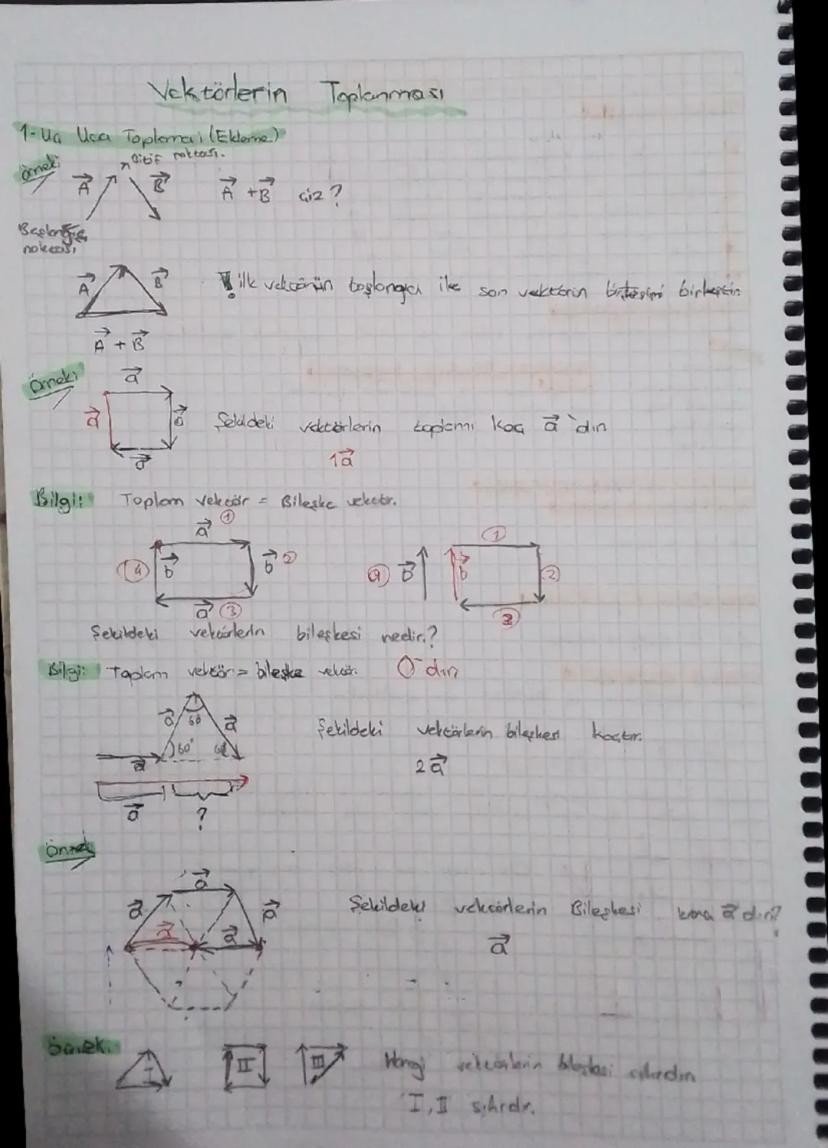 Vektörlerin Toplanması
1-Uç Uca Toplama (Ekleme)
Örnek
Bitiş noktası.
A B A + B çiz?
Başlangıç
noktası
A B ! ilk vektörün başlangıcı ile son vektörün birleştir
A + B
Örnek
a
a Şekildeki vektörlerin toplamı kaç a 'dır
a
1a
Bilgi: Toplam vektör = Bileşke vektör.
a 1 1
4 b b 2 b b 2
a 3
Şekildeki vektörlerin bileşkesi nedir?
Bilgi: Toplam vektör = bileşke vektör. 0 dır
a 60 a Şekildeki vektörlerin bileşkesi kaçtır.
60°
a 2a
a ?
Örnek
a
a a Şekildeki vektörlerin Bileşkesi kaç a dır?
a a a
Örnek.
I II III Hangi vektörlerin bileşkesi sıfırdır
I, II sıfırdır.